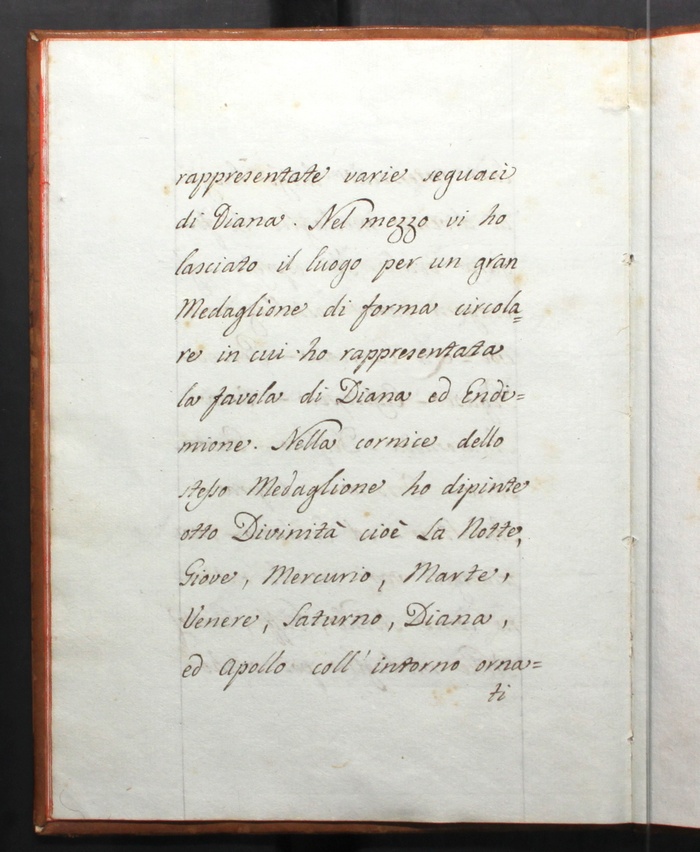 rappresentate varie seguaci
di Diana. Nel mezzo vi ho
lasciato il luogo per un gran
Medaglione di forma circola=
re in cui ho rappresentata
la favola di Diana ed Endi=
mione. Nella cornice dello
stesso Medaglione ho dipinte
otto Divinità cioè La Notte,
Giove, Mercurio, Marte,
Venere, Saturno, Diana,
ed Apollo coll' intorno orna=
ti